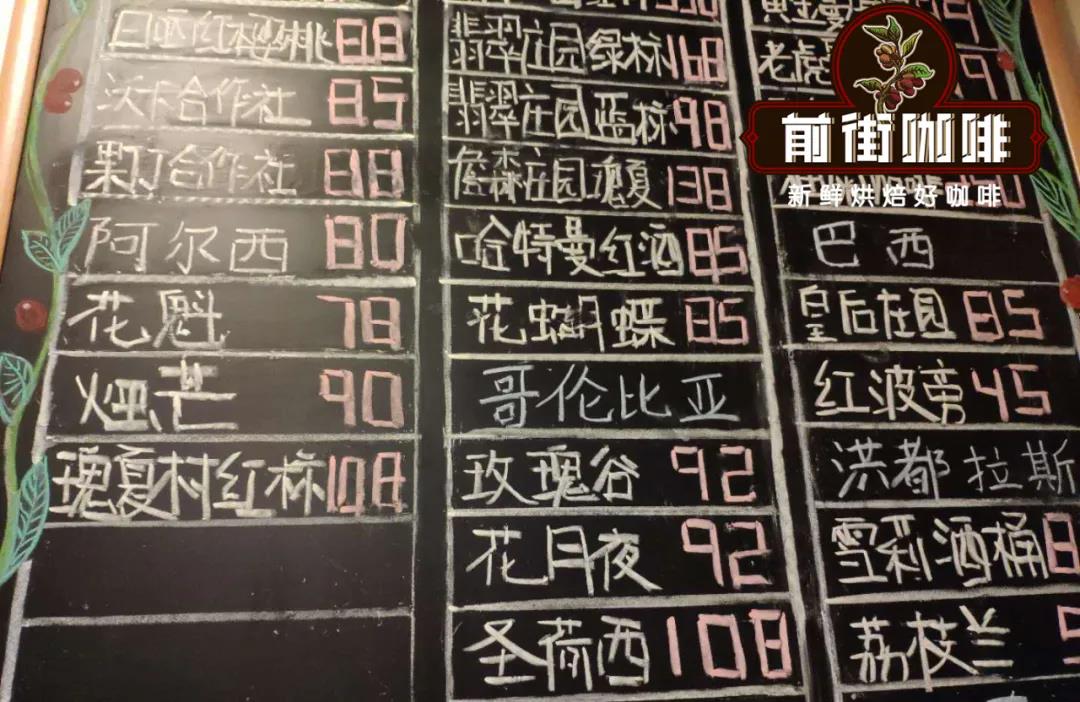 日晒红樱桃 88
沃卡合作社 85
果丁合作社 88
阿尔西 80
花魁 78
烟芒 90
瑰夏村红标 108
翡翠庄园绿标 168
翡翠庄园蓝标 98
詹森庄园瑰夏 138
哈特曼红酒 85
花蝴蝶 85
哥伦比亚
玫瑰谷 92
花月夜 92
圣荷西 108
黄金曼
老虎
巴西
皇后庄园 85
红波旁 45
洪都拉斯
雪莉酒桶
荔枝兰
前街咖啡
新鲜烘焙好咖啡